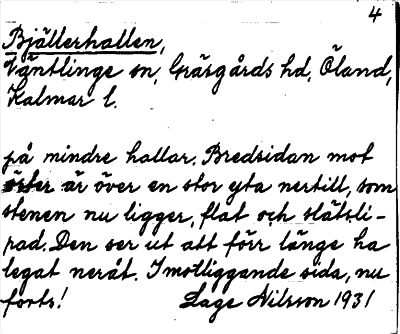 4
Bjällerhallen,
Ventlinge sn, Gräsgårds hd, Öland,
Kalmar l.
på mindre hallar. Bredsidan mot
öster är över en stor yta nertill, som
stenen nu ligger, flat och slätsli-
pad. Den ser ut att förr länge ha
legat neråt. I motliggande sida, nu
forts! Lage Nilsson 1931